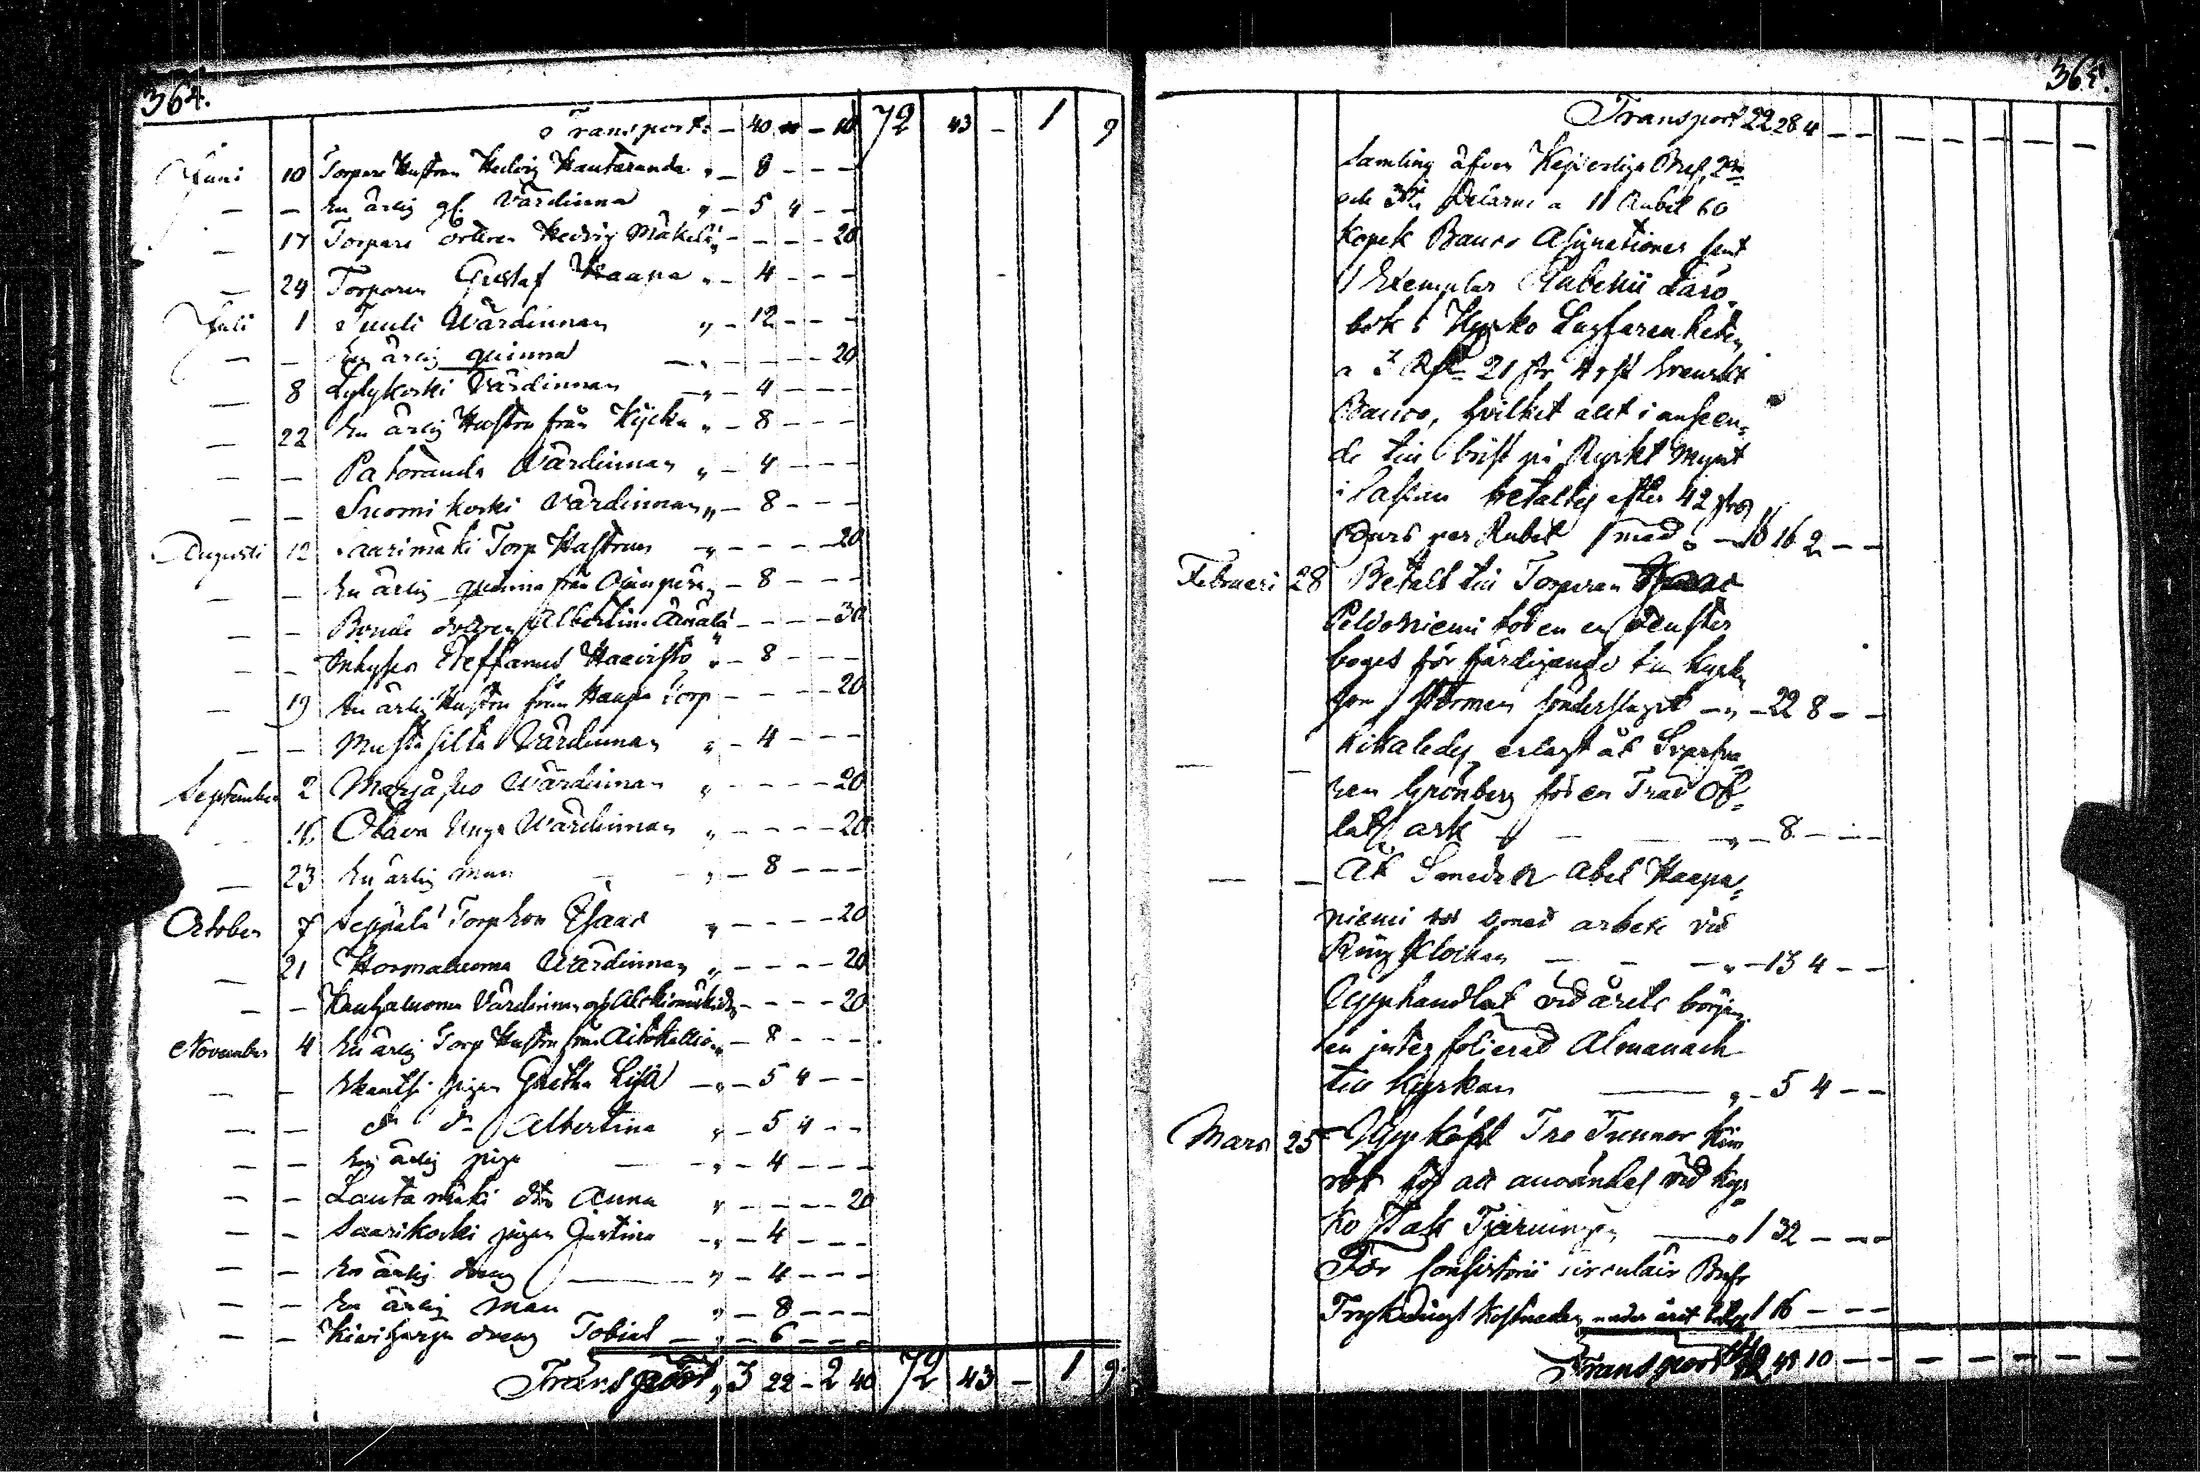 364.
Transport. – 40 – – 10 72 43 – 1 9
Juni 10 Torpare Hustrun Hedvig Hautaranda „ – 8 – – –
– – En ärlig gl. Värdinna „ – 5 4 – –
– 17 Torpare dottren Hedvig Mäkelä „ – – – – 20
– 24 Torparen Gustaf Haapa „ – 4 – – –
Juli 1 Tuuli Wärdinnan „ – 12 – – –
– – En ärlig quinna – „ – – – – 20
– 8 Lylykoski Värdinnan – „ – 4 – – –
– 22 En ärlig Hustru från Kycku „ – 8 – – –
– – Patoranda Wärdinnan „ – 4 – – –
– – Suomikoski Värdinnan „ – 8 – – –
Augusti 12 Saarimäki Torp Hustrun – „ – – – – 20
– – En ärlig quinna från „ – 8 – – –
– – Bonde dottren Albertina Annala – – – – 30
– – Inhyses Steffanus Haavisto „ – 8 – – –
– 19 En ärlig Hustru från Haapa Torp – – – – 20
– – Mustasilta Värdinnan „ – 4 – – –
September 2 Marjaho Wärdinnan „ – – – – 20
16 Olava Unga Wärdinnan „ – – – – 20
– 23 En ärlig man – „ – 8 – – –
October 7 Seppälä Torp Son Isaac „ – – – – 20
– 21 Hormaluoma Wärdinnan „ – – – – 20
– – Kauhaluoma Värdinnan och – – – – 20
November 4 En ärlig Torp Hustru från Aitokallio „ – 8 – – –
– – pigan Greta Lisa – „ – 5 4 – –
– – do do Albertina „ – 5 4 – –
– – En ärlig piga – – „ – 4 – – –
– – Lautamäki dtr Anna „ – – – – 20
– – Saarikoski pigan Justina – „ – 4 – – –
– – En ärlig dreng – „ – 4 – – –
– – En ärlig man „ – 8 – – –
– – Kiviharju dreng Tobias – „ – 6 – – –
Transport „ 3 22 – 2 40 72 43 – 1 9
365.
Transport 22 28 4 – –
samling äfven Kejserliga Bref, 2dra
och 3die Delarne a 11 Rubel 60
Kopek Banco Assignationer samt
1 Exemplar Rabenii Läro
bok i Kyrko Lagfarenheten
a 3 Rd 21 sk 4 rst Svenskt
Banco, hvilket alt i anseen=
de till brist på Ryskt Mynt
i Cassan betaltes efter 42 sk
Cours per Rubel med „ – 16 16 2 – –
Februari 28 Betalt till Torparen Isaac
Peldoniemi för en fenster
boges för färdigande till Kyrkn
som Stormen sönderslagit – „ – 22 8 – –
– – Likaledes erlagt åt
Grönberg för en Trad Ob=
lats ark – – – „ – 8 – – –
– – Åt Smeden Abel Haapa=
niemi för smed arbete vid
Ring Klockan – – – „ – 13 4 – –
Upphandlat vid årets början
en interfolierad Almanach
till Kyrkan – „ – 5 4 – –
Mars 25 Uppköpt Tre Tunnor Kim
rök för att användas vid Kyr=
ko Tak Tjärningen – „ 1 32 – – –
För Consistorii circulair Bref
Tryckningskostnaden under året betalt 1 16 – – –
Transport 42 48 10 – – – – – – – –